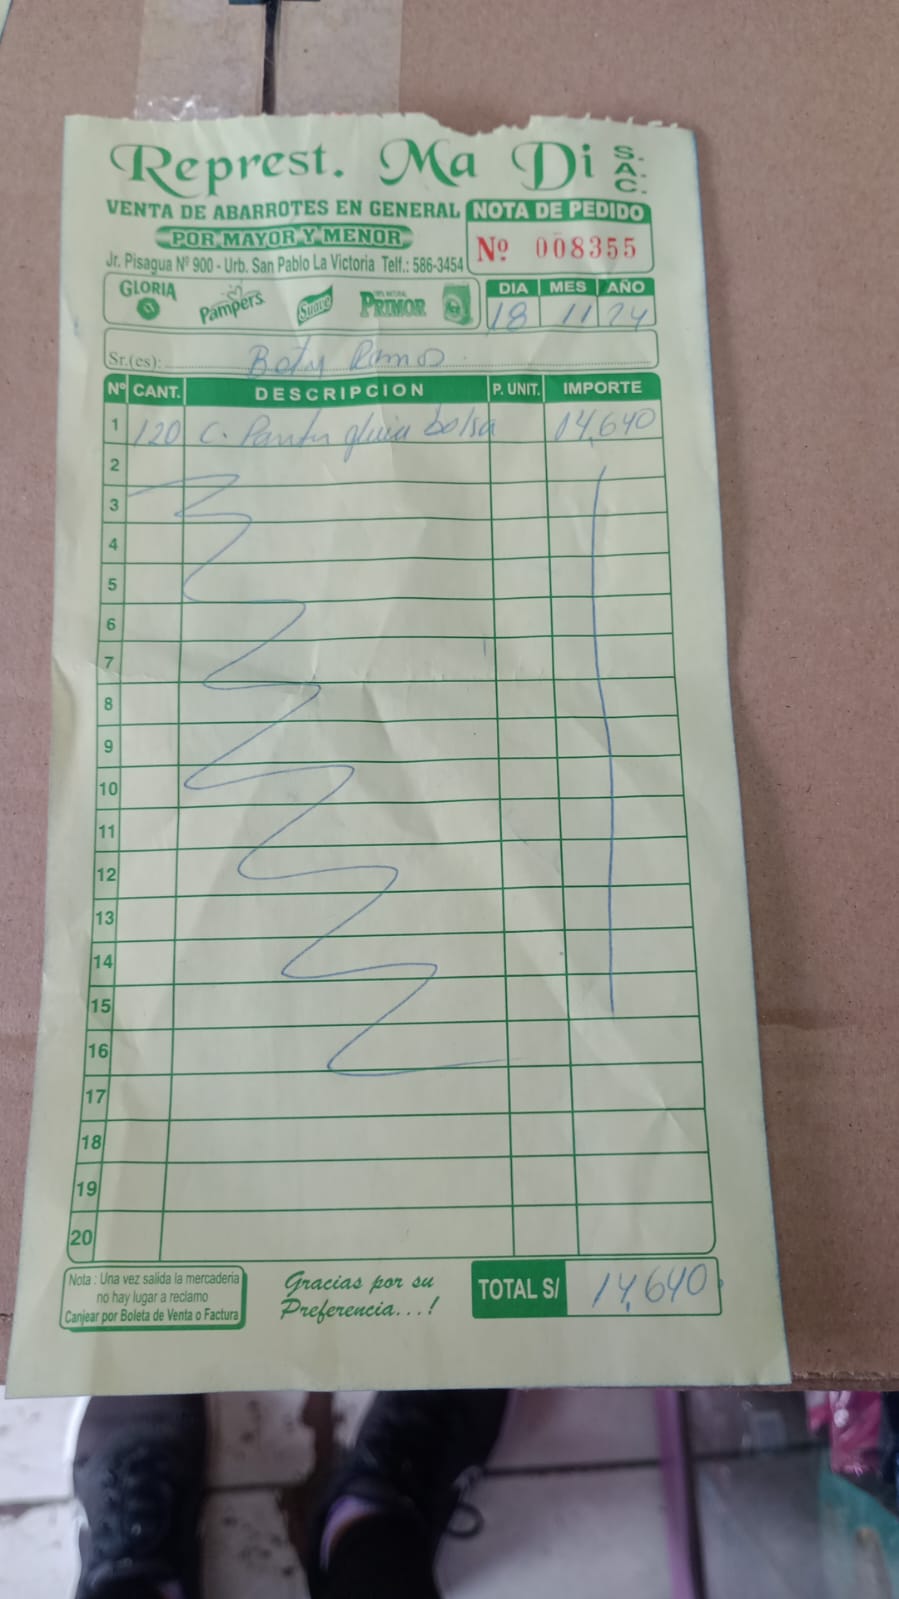 Represt. Ma Di S.A.C.
VENTA DE ABARROTES EN GENERAL
POR MAYOR Y MENOR
Jr. Pisagua Nº 900 - Urb. San Pablo La Victoria Telf.: 586-3454
NOTA DE PEDIDO
Nº 008355
GLORIA Pampers Suave PRIMOR
DIA MES AÑO
18 11 24
Sr.(es): Bety Ramos
Nº CANT. DESCRIPCION P. UNIT. IMPORTE
1 120 C. bolsa 14,640
2
3
4
5
6
7
8
9
10
11
12
13
14
15
16
17
18
19
20
Nota : Una vez salida la mercaderia
no hay lugar a reclamo
Canjear por Boleta de Venta o Factura
Gracias por su
Preferencia...!
TOTAL S/ 14,640